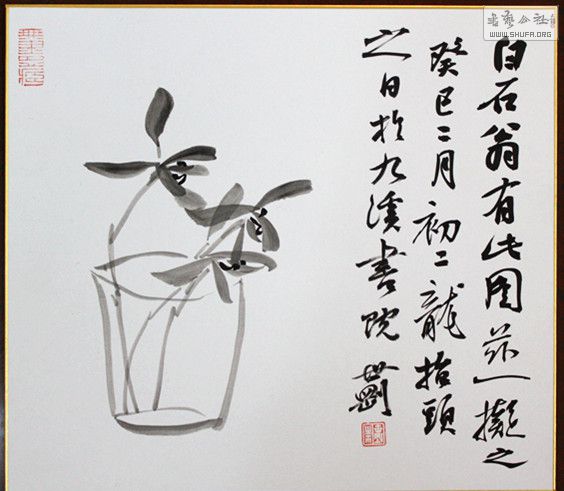 白石翁有此图兹一拟之
癸巳二月初二龙抬头
之日於九溪書院
書藝公社
WWW.SHUFA.ORG